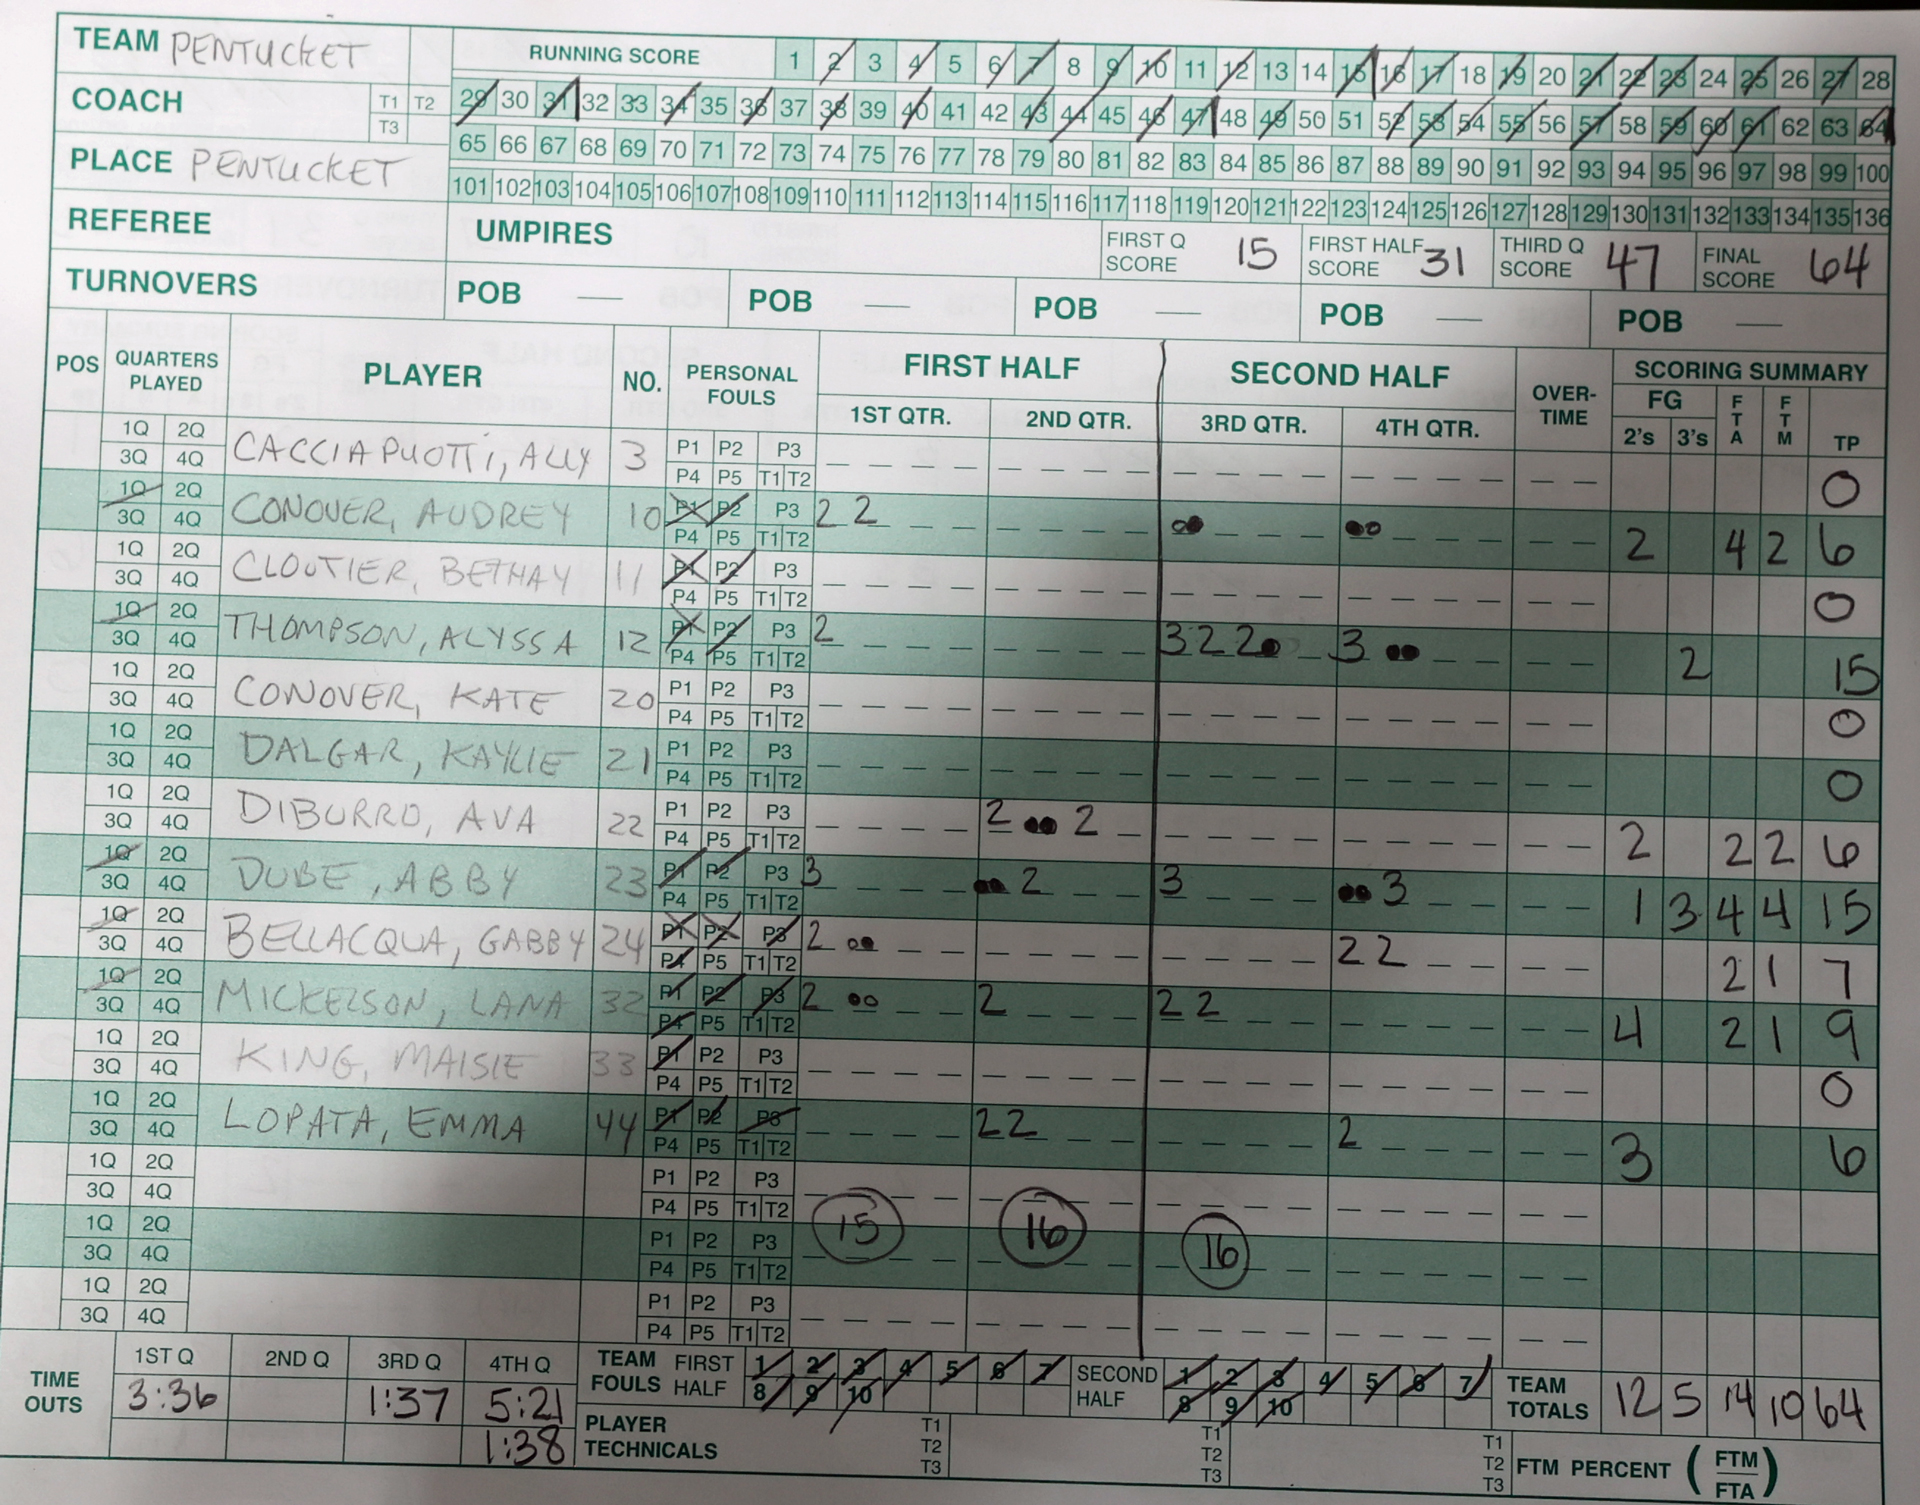 TEAM PENTUCKET RUNNING SCORE 1 2 3 4 5 6 7 8 9 10 11 12 13 14 15 16 17 18 19 20 21 22 23 24 25 26 27 28
COACH T1 T2 T3 29 30 31 32 33 34 35 36 37 38 39 40 41 42 43 44 45 46 47 48 49 50 51 52 53 54 55 56 57 58 59 60 61 62 63 64
65 66 67 68 69 70 71 72 73 74 75 76 77 78 79 80 81 82 83 84 85 86 87 88 89 90 91 92 93 94 95 96 97 98 99 100
PLACE PENTUCKET 101 102 103 104 105 106 107 108 109 110 111 112 113 114 115 116 117 118 119 120 121 122 123 124 125 126 127 128 129 130 131 132 133 134 135 136
REFEREE UMPIRES FIRST Q SCORE 15 FIRST HALF SCORE 31 THIRD Q SCORE 47 FINAL SCORE 64
TURNOVERS POB — POB — POB — POB — POB —
POS QUARTERS PLAYED PLAYER NO. PERSONAL FOULS FIRST HALF 1ST QTR. 2ND QTR. SECOND HALF 3RD QTR. 4TH QTR. OVER-TIME SCORING SUMMARY FG 2's 3's FTA FTM TP
1Q 2Q 3Q 4Q CACCIAPUOTTI, ALLY 3 P1 P2 P3 P4 P5 T1 T2 0
1Q 2Q 3Q 4Q CONOVER, AUDREY 10 P1 P2 P3 P4 P5 T1 T2 2 2 2 4 2 6
1Q 2Q 3Q 4Q CLOUTIER, BETHAY 11 P1 P2 P3 P4 P5 T1 T2 0
1Q 2Q 3Q 4Q THOMPSON, ALYSSA 12 P1 P2 P3 P4 P5 T1 T2 2 3 2 2 3 2 15
1Q 2Q 3Q 4Q CONOVER, KATE 20 P1 P2 P3 P4 P5 T1 T2 0
1Q 2Q 3Q 4Q DALGAR, KAYLIE 21 P1 P2 P3 P4 P5 T1 T2 0
1Q 2Q 3Q 4Q DIBURRO, AVA 22 P1 P2 P3 P4 P5 T1 T2 2 2 2 2 2 6
1Q 2Q 3Q 4Q DUBE, ABBY 23 P1 P2 P3 P4 P5 T1 T2 3 2 3 3 1 3 4 4 15
1Q 2Q 3Q 4Q BELLACQUA, GABBY 24 P1 P2 P3 P4 P5 T1 T2 2 2 2 2 1 7
1Q 2Q 3Q 4Q MICKELSON, LANA 32 P1 P2 P3 P4 P5 T1 T2 2 2 2 2 4 2 1 9
1Q 2Q 3Q 4Q KING, MAISIE 33 P1 P2 P3 P4 P5 T1 T2 0
1Q 2Q 3Q 4Q LOPATA, EMMA 44 P1 P2 P3 P4 P5 T1 T2 2 2 2 3 6
1Q 2Q 3Q 4Q P1 P2 P3 P4 P5 T1 T2
1Q 2Q 3Q 4Q P1 P2 P3 P4 P5 T1 T2 15 16 16
1Q 2Q 3Q 4Q P1 P2 P3 P4 P5 T1 T2
TIME OUTS 1ST Q 3:36 2ND Q 3RD Q 1:37 4TH Q 5:21 1:38
TEAM FOULS FIRST HALF 1 2 3 4 5 6 7 8 9 10 SECOND HALF 1 2 3 4 5 6 7 8 9 10 TEAM TOTALS 12 5 14 10 64
PLAYER TECHNICALS T1 T2 T3 T1 T2 T3 T1 T2 T3 FTM PERCENT (FTM FTA)